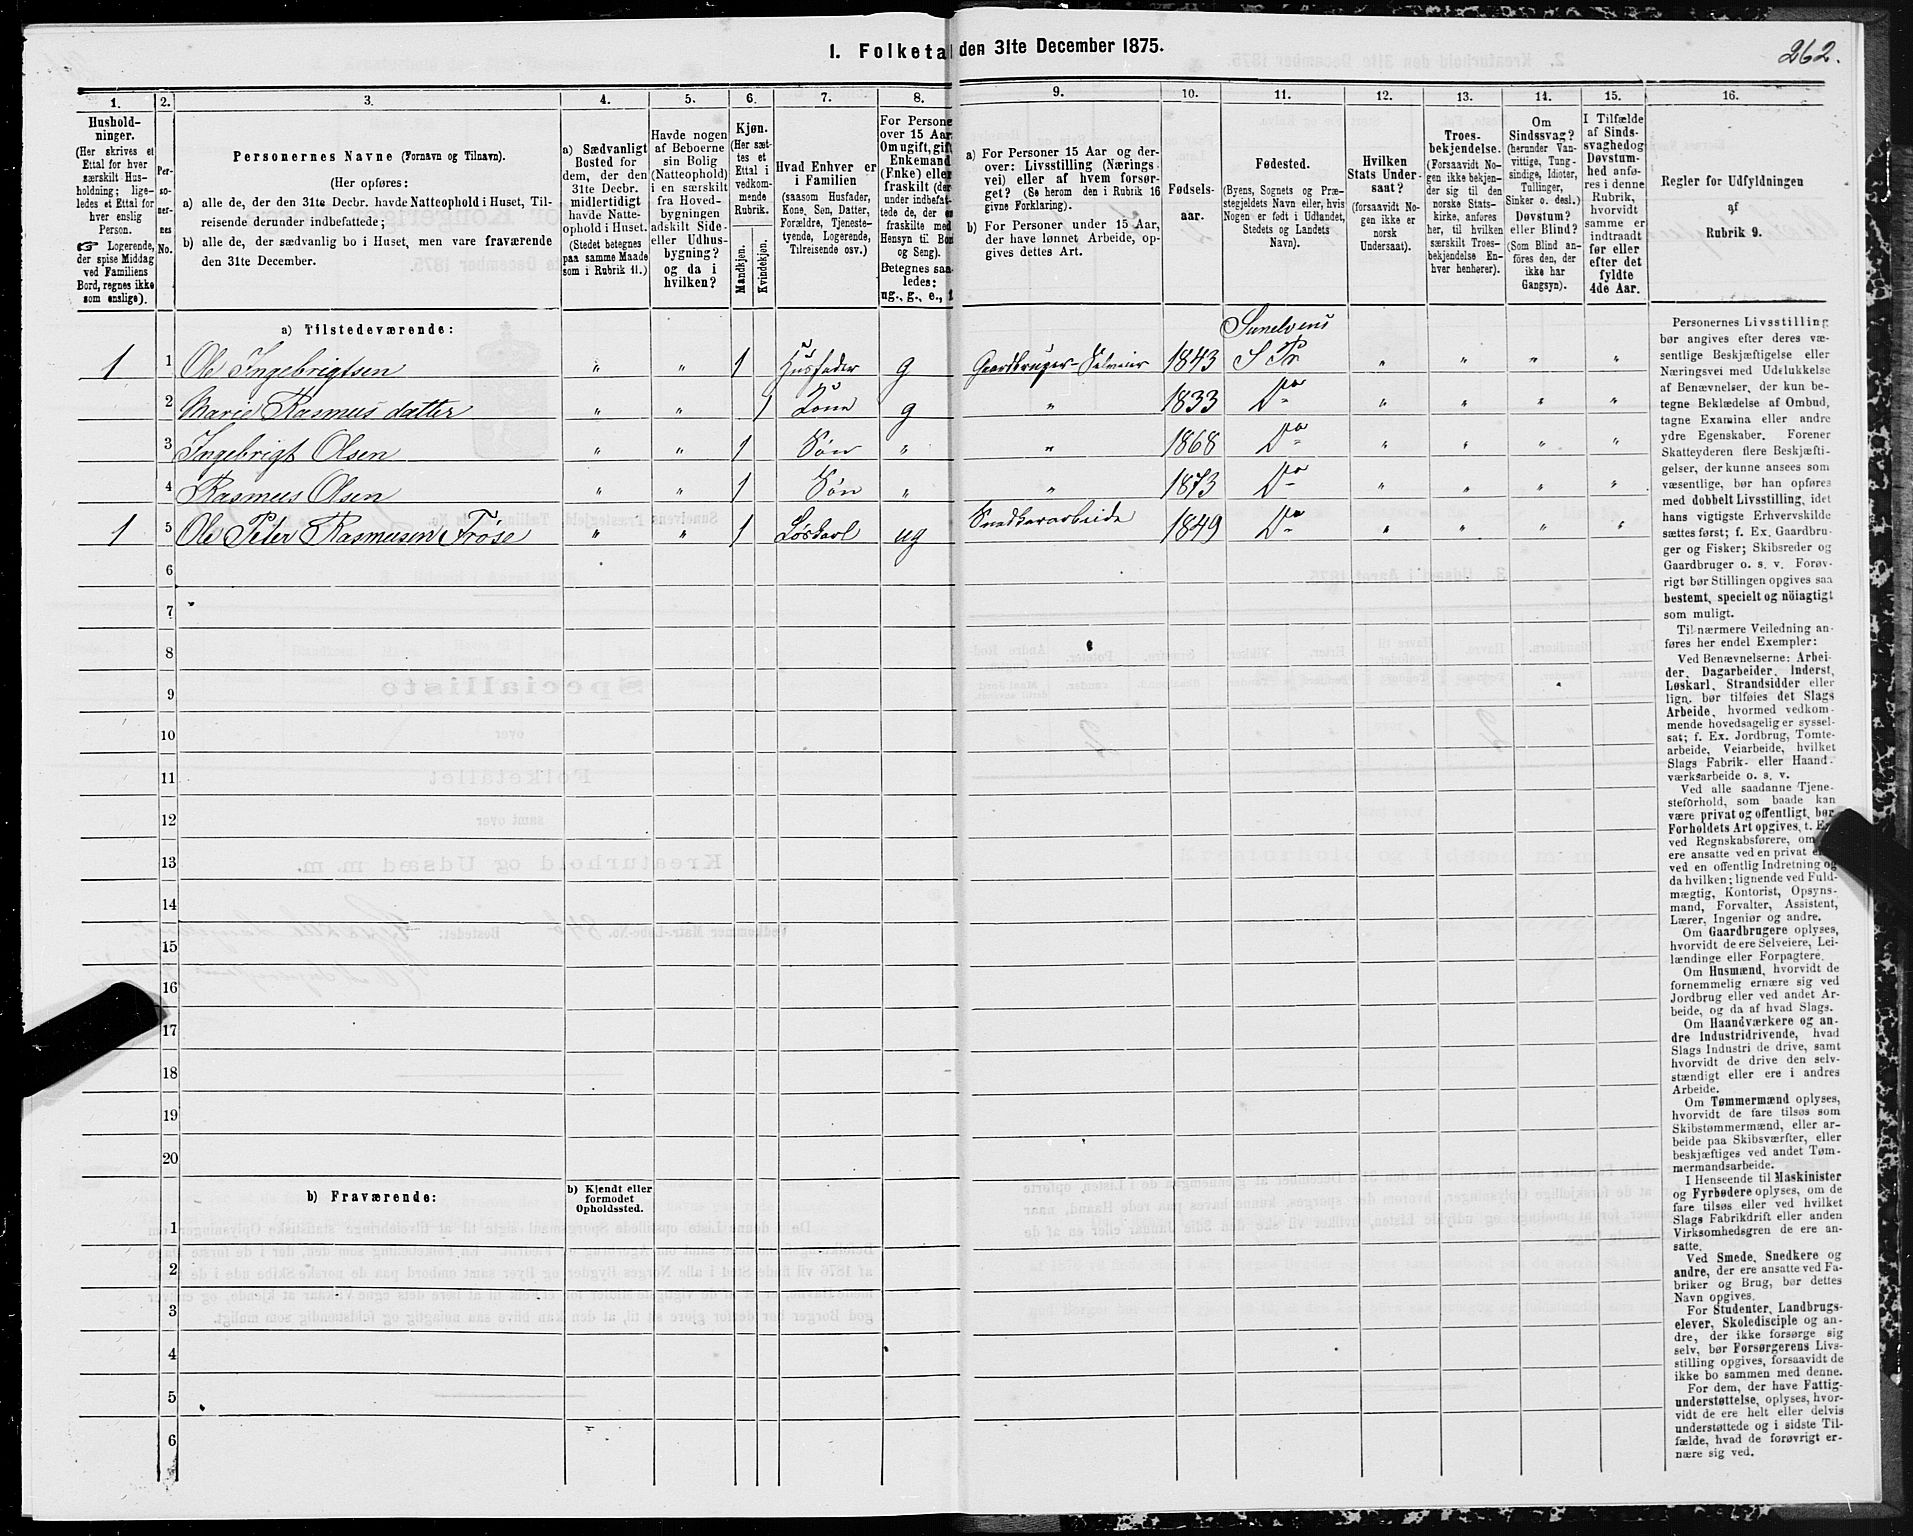 I. Folketal den 31te December 1875.
262.
1.
2.
3.
4.
5.
6.
7.
8.
9.
10.
11.
12.
13.
14.
15.
16.
Hushold-
ninger.
(Her skrives et
Ettal for hver
særskilt Hus-
holdning; lige-
ledes et Ettal for
hver enslig
Person.
☞ Logerende,
der spise Middag
ved Familiens
Bord, regnes ikke
som enslige).
Per-
so-
ner-
nes
No.
Personernes Navne (Fornavn og Tilnavn).
(Her opføres:
a) alle de, der den 31te Decbr. havde Natteophold i Huset, Til-
reisende derunder indbefattede;
b) alle de, der sædvanlig bo i Huset, men vare fraværende
den 31te December.
a) Sædvanligt
Bosted for
dem, der den
31te Decbr.
midlertidigt
havde Natte-
ophold i Huset.
(Stedet betegnes
paa samme Maade
som i Rubrik 11.)
Havde nogen
af Beboerne
sin Bolig
(Natteophold)
i en særskilt
fra Hoved-
bygningen
adskilt Side-
eller Udhus-
bygning?
og da i
hvilken?
Kjøn.
(Her sæt-
tes et
Ettal i
vedkom-
mende
Rubrik.
Mandkjøn.
Kvindekjøn.
Hvad Enhver er
i Familien
(saasom Husfader,
Kone, Søn, Datter,
Forældre, Tjeneste-
tyende, Logerende,
Tilreisende osv.)
For Persone
over 15 Aar
Om ugift, gift
Enkemand
(Enke) eller
fraskilt (der
under indbefat-
tede de, der er
fraskilte med
Hensyn til Bor
og Seng).
Betegnes saa
ledes:
ug., g., e., f
a) For Personer 15 Aar og der-
over: Livsstilling (Nærings-
vei) eller af hvem forsør-
get? (Se herom den i Rubrik 16
givne Forklaring).
b) For Personer under 15 Aar,
der have lønnet Arbeide, op-
gives dettes Art.
Fødsels-
aar.
Fødested.
(Byens, Sognets og Præ-
stegjeldets Navn eller, hvis
Nogen er født i Udlandet,
Stedets og Landets
Navn).
Hvilken
Stats Under-
saat?
(forsaavidt No-
gen ikke er
norsk
Undersaat).
Troes-
bekjendelse.
(Forsaavidt No-
gen ikke bekjen-
der sig til den
norske Stats-
kirke, anføres
her, til hvilken
særskilt Troes-
bekjendelse En-
hver henhører).
Om
Sindssvag?
(herunder Van-
vittige, Tung-
sindige, Idioter,
Tullinger,
Sinker o. desl.)
Døvstum?
eller Blind?
(Som Blind an-
føres den, der
ikke har
Gangsyn).
I Tilfælde
af Sinds-
svaghed og
Døvstum-
hed anfø-
res i denne
Rubrik,
hvorvidt
samme er
indtraadt
før eller
efter det
fyldte
4de Aar.
Regler for Udfyldningen
af
Rubrik 9.
a) Tilstedeværende:
1 1 Ole Ingebrigtsen " " 1 Husfader g Gaardbruger-Selveier 1843 Sunelvens S Pr " " " "
2 Marie Rasmus datter " " 1 Kone g " 1833 Do " " " "
3 Ingebrigt Olsen " " 1 Søn " " 1868 Do " " " "
4 Rasmus Olsen " " 1 Søn " " 1873 Do " " " "
1 5 Ole Peter Rasmusen Frøse " " 1 Løskarl ug Snedkerarbeide 1849 Do " " " "
6
7
8
9
10
11
12
13
14
15
16
17
18
19
20
b) Fraværende:
b) Kjendt eller
formodet
Opholdssted.
1
2
3
4
5
6
Personernes Livsstilling
bør angives efter deres væ-
sentlige Beskjæftigelse eller
Næringsvei med Udelukkelse
af Benævnelser, der kun be-
tegne Beklædelse af Ombud,
tagne Examina eller andre
ydre Egenskaber. Forener
Skatteyderen flere Beskjæfti-
gelser, der kunne ansees som
væsentlige, bør han opføres
med dobbelt Livsstilling, idet
hans vigtigste Erhvervskilde
sættes først; f. Ex. Gaardbru-
ger og Fisker; Skibsreder og
Gaardbruger o. s. v. Forøv-
rigt bør Stillingen opgives saa
bestemt, specielt og nöiagtigt
som muligt.
Til nærmere Veiledning an-
føres her endel Exempler:
Ved Benævnelserne: Arbei-
der, Dagarbeider, Inderst,
Løskarl, Strandsidder eller
lign. bør tilføies det Slags
Arbeide, hvormed vedkom-
mende hovedsagelig er syssel-
sat; f. Ex. Jordbrug, Tomte-
arbeide, Veiarbeide, hvilket
Slags Fabrik- eller Haand-
værksarbeide o. s. v.
Ved alle saadanne Tjene-
steforhold, som baade kan
være privat og offentligt, bør
Forholdets Art opgives, t. Ex
ved Regnskabsførere, om
ere ansatte ved en privat el
ved en offentlig Indretning og
da hvilken; lignende ved Fuld-
mægtig, Kontorist, Opsyns-
mand, Forvalter, Assistent,
Lærer, Ingeniør og andre.
Om Gaardbrugere oplyses,
hvorvidt de ere Selveiere, Lei-
lændinge eller Forpagtere.
Om Husmænd, hvorvidt de
fornemmelig ernære sig ved
Jordbrug eller ved andet Ar-
beide, og da af hvad Slags.
Om Haandværkere og an-
dre Industridrivende, hvad
Slags Industri de drive, samt
hvorvidt de drive den selv-
stændigt eller ere i andres
Arbeide.
Om Tømmermænd oplyses,
hvorvidt de fare tilsøs som
Skibstømmermænd, eller ar-
beide paa Skibsværfter, eller
beskjæftiges ved andet Tøm-
mermandsarbeide.
I Henseende til Maskinister
og Fyrbødere oplyses, om de
fare tilsøs eller ved hvilket
Slags Fabrikdrift eller anden
Virksomhedsgren de ere an-
satte.
Ved Smede, Snedkere og
andre, der ere ansatte ved Fa-
briker og Brug, bør dettes
Navn opgives.
For Studenter, Landbrugs-
elever, Skoledisciple og an-
dre, der ikke forsørge sig
selv, bør Forsørgerens Livs-
stilling opgives, forsaavidt de
ikke bo sammen med denne.
For dem, der have Fattig-
understøttelse, oplyses, hvor-
vidt de ere helt eller delvis
understøttede og i sidste Til-
fælde, hvad de forøvrigt er-
nære sig ved.